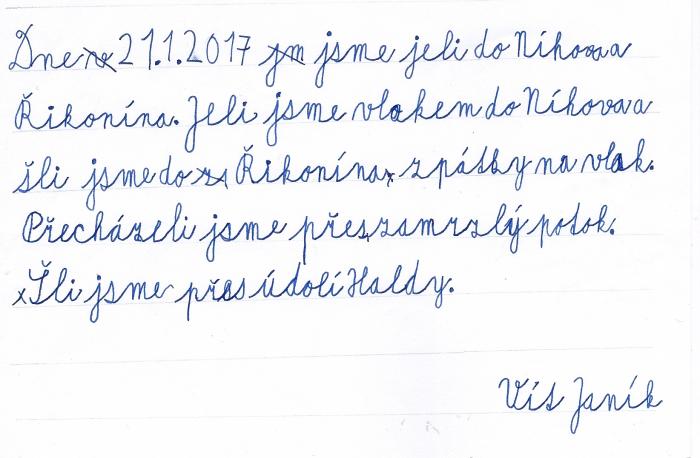 Dne 21.1.2017 jsme jeli do Níhova a
Řikonína. Jeli jsme vlakem do Níhova a
šli jsme do Řikonína zpátky na vlak.
Přecházeli jsme přes zamrzlý potok.
Šli jsme přes údolí Haldy.
Vít Janík